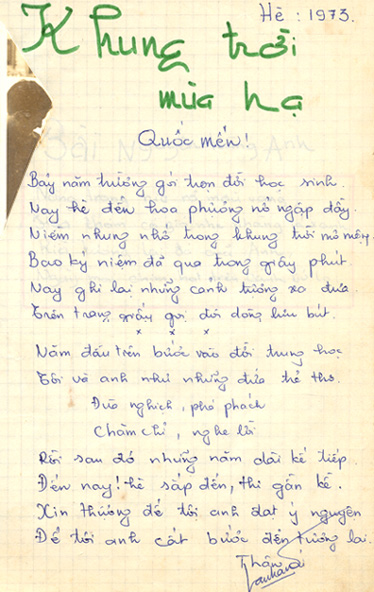 Hè : 1973.
Khung trời
mùa hạ
Quốc mến !
Bảy năm trường gói trọn đời học sinh.
Nay hè đến hoa phượng nở ngập đầy.
Niềm nhung nhớ trong khung trời mơ mộng
Bao kỷ niệm đã qua trong giây phút
Nay ghi lại những cảnh tượng xa xưa
Trên trang giấy gọi đôi dòng lưu bút.
x x x
Năm đầu tiên bước vào đời trung học
Tôi và anh như những đứa trẻ thơ.
Đùa nghịch, phá phách
Chăm chỉ, nghe lời
Rồi sau đó những năm dài kế tiếp.
Đến nay! hè sắp đến, thi gần kề.
Xin thượng đế tôi anh đạt ý nguyện
Để tôi anh cất bước đến tương lai.
Thân